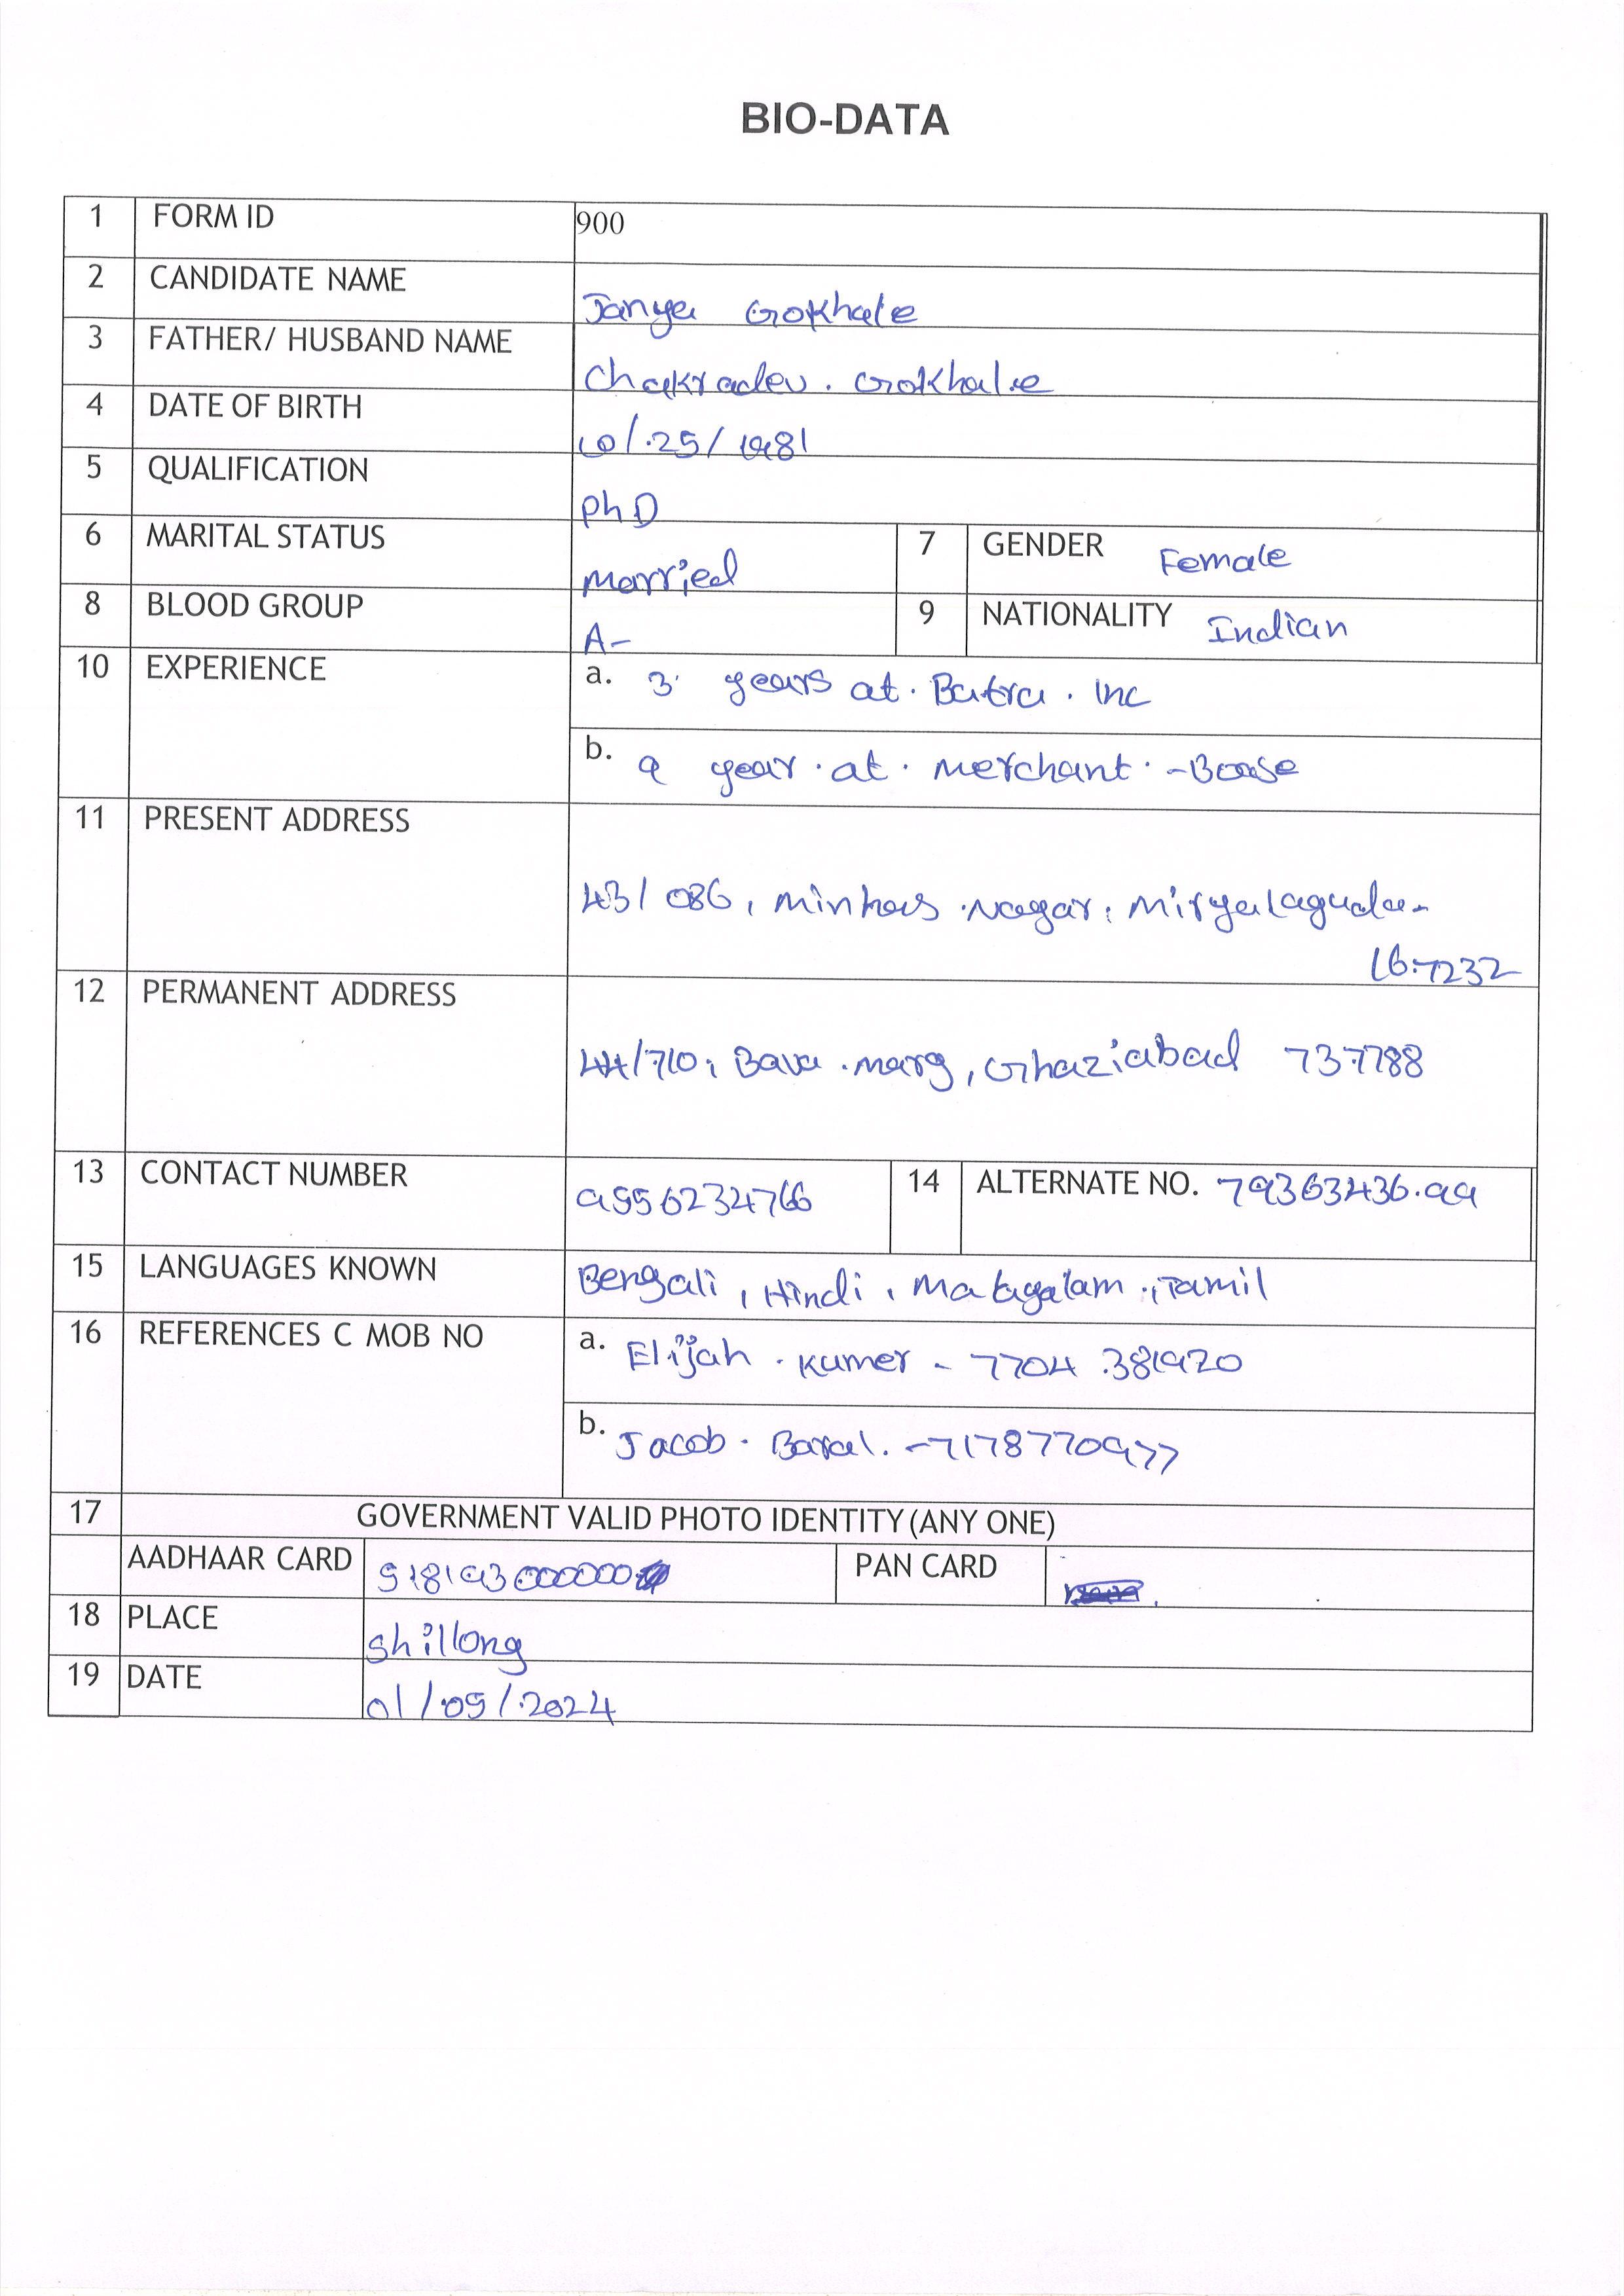 BIO-DATA
1 FORM ID 900
2 CANDIDATE NAME Janya Gokhale
3 FATHER/ HUSBAND NAME Chakradev. Gokhale
4 DATE OF BIRTH 10/.25/1981
5 QUALIFICATION PhD
6 MARITAL STATUS Married 7 GENDER Female
8 BLOOD GROUP A- 9 NATIONALITY Indian
10 EXPERIENCE a. 3 years at. Batra. Inc
b. 9 year.at. Merchant.-Boase
11 PRESENT ADDRESS 43/086, Minhas.Nagar, Miryalaguda-
167232
12 PERMANENT ADDRESS 44/710, Bava.marg, Ghaziabad 737788
13 CONTACT NUMBER 9556234766 14 ALTERNATE NO. 79363436.99
15 LANGUAGES KNOWN Bengali, Hindi, Malayalam.,Tamil
16 REFERENCES C MOB NO a. Elijah.Kumer - 7704.381920
b. Jacob. Baral.-7178770977
17 GOVERNMENT VALID PHOTO IDENTITY(ANY ONE)
AADHAAR CARD PAN CARD
18 PLACE Shillong
19 DATE 01/05/.2024